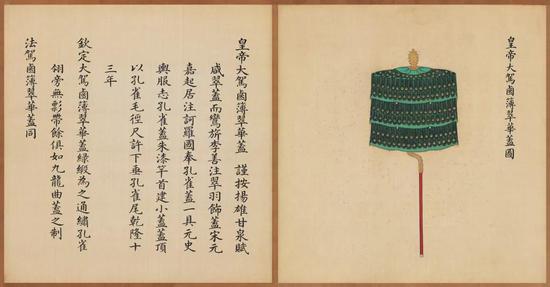 皇帝大駕鹵薄翠華蓋圖
皇帝大駕鹵薄翠華蓋 謹按揚雄甘泉賦
咸翠蓋而鸞旂李善注翠羽飾蓋宋元
嘉起居注訶羅國奉孔雀蓋一具元史
輿服志孔雀蓋朱漆竿首建小蓋蓋頂
以孔雀毛徑尺許下垂孔雀尾乾隆十
三年
欽定大駕鹵薄翠華蓋綠緞為之通繡孔雀
翎旁無帶餘俱如九龍曲蓋之制
法駕鹵薄翠華蓋同